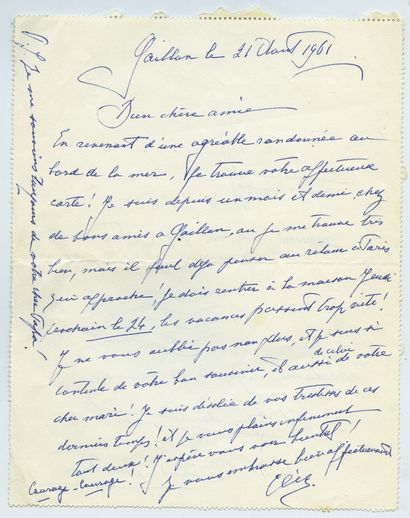 Gaillon le 21 Août 1961
Bien chère amie
En revenant d'une agréable randonnée au
bord de la mer, je trouve votre affectueuse
carte! Je suis depuis un mois et demi, chez
de bons amis à Gaillon, où je me trouve très
bien, mais il faut déjà penser au retour à Paris
qui approche! je dois rentrer à la maison Jeudi
prochain le 24, les vacances passent trop vite!
Je ne vous oublie pas non plus, et je suis si
contente de votre bon souvenir, et aussi de celui de votre
cher mari! Je suis désolée de vos tristesses de ces
derniers temps! et je vous plains infiniment
tous deux! J'espère vous voir bientôt!
Courage - Courage! Je vous embrasse bien affectueusement
P.S. Je me souviens toujours de votre cher Papa!